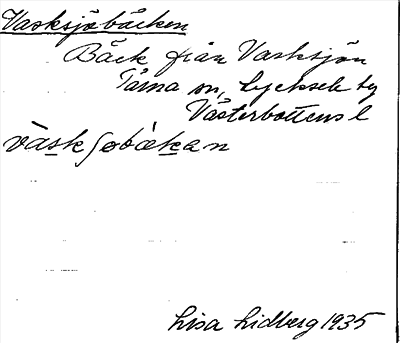 Vasksjöbäcken
Bäck från Vasksjön
Tärna sn, Lycksele tg
Västerbottens l
Lisa Lidberg 1935